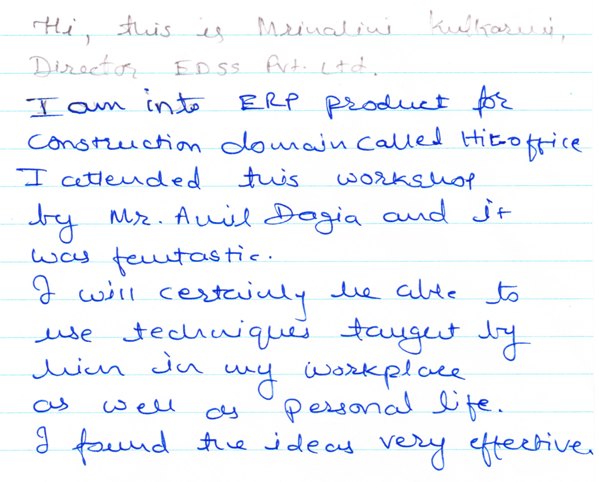 Hi, this is Mrinalini Kulkarni,
Director EDSS Pvt. Ltd.
I am into ERP product for
construction domain called Hit-office
I attended this workshop
by Mr. Anil Dagia and it
was fantastic.
I will certainly be able to
use techniques taught by
him in my workplace
as well as personal life.
I found the ideas very effective.